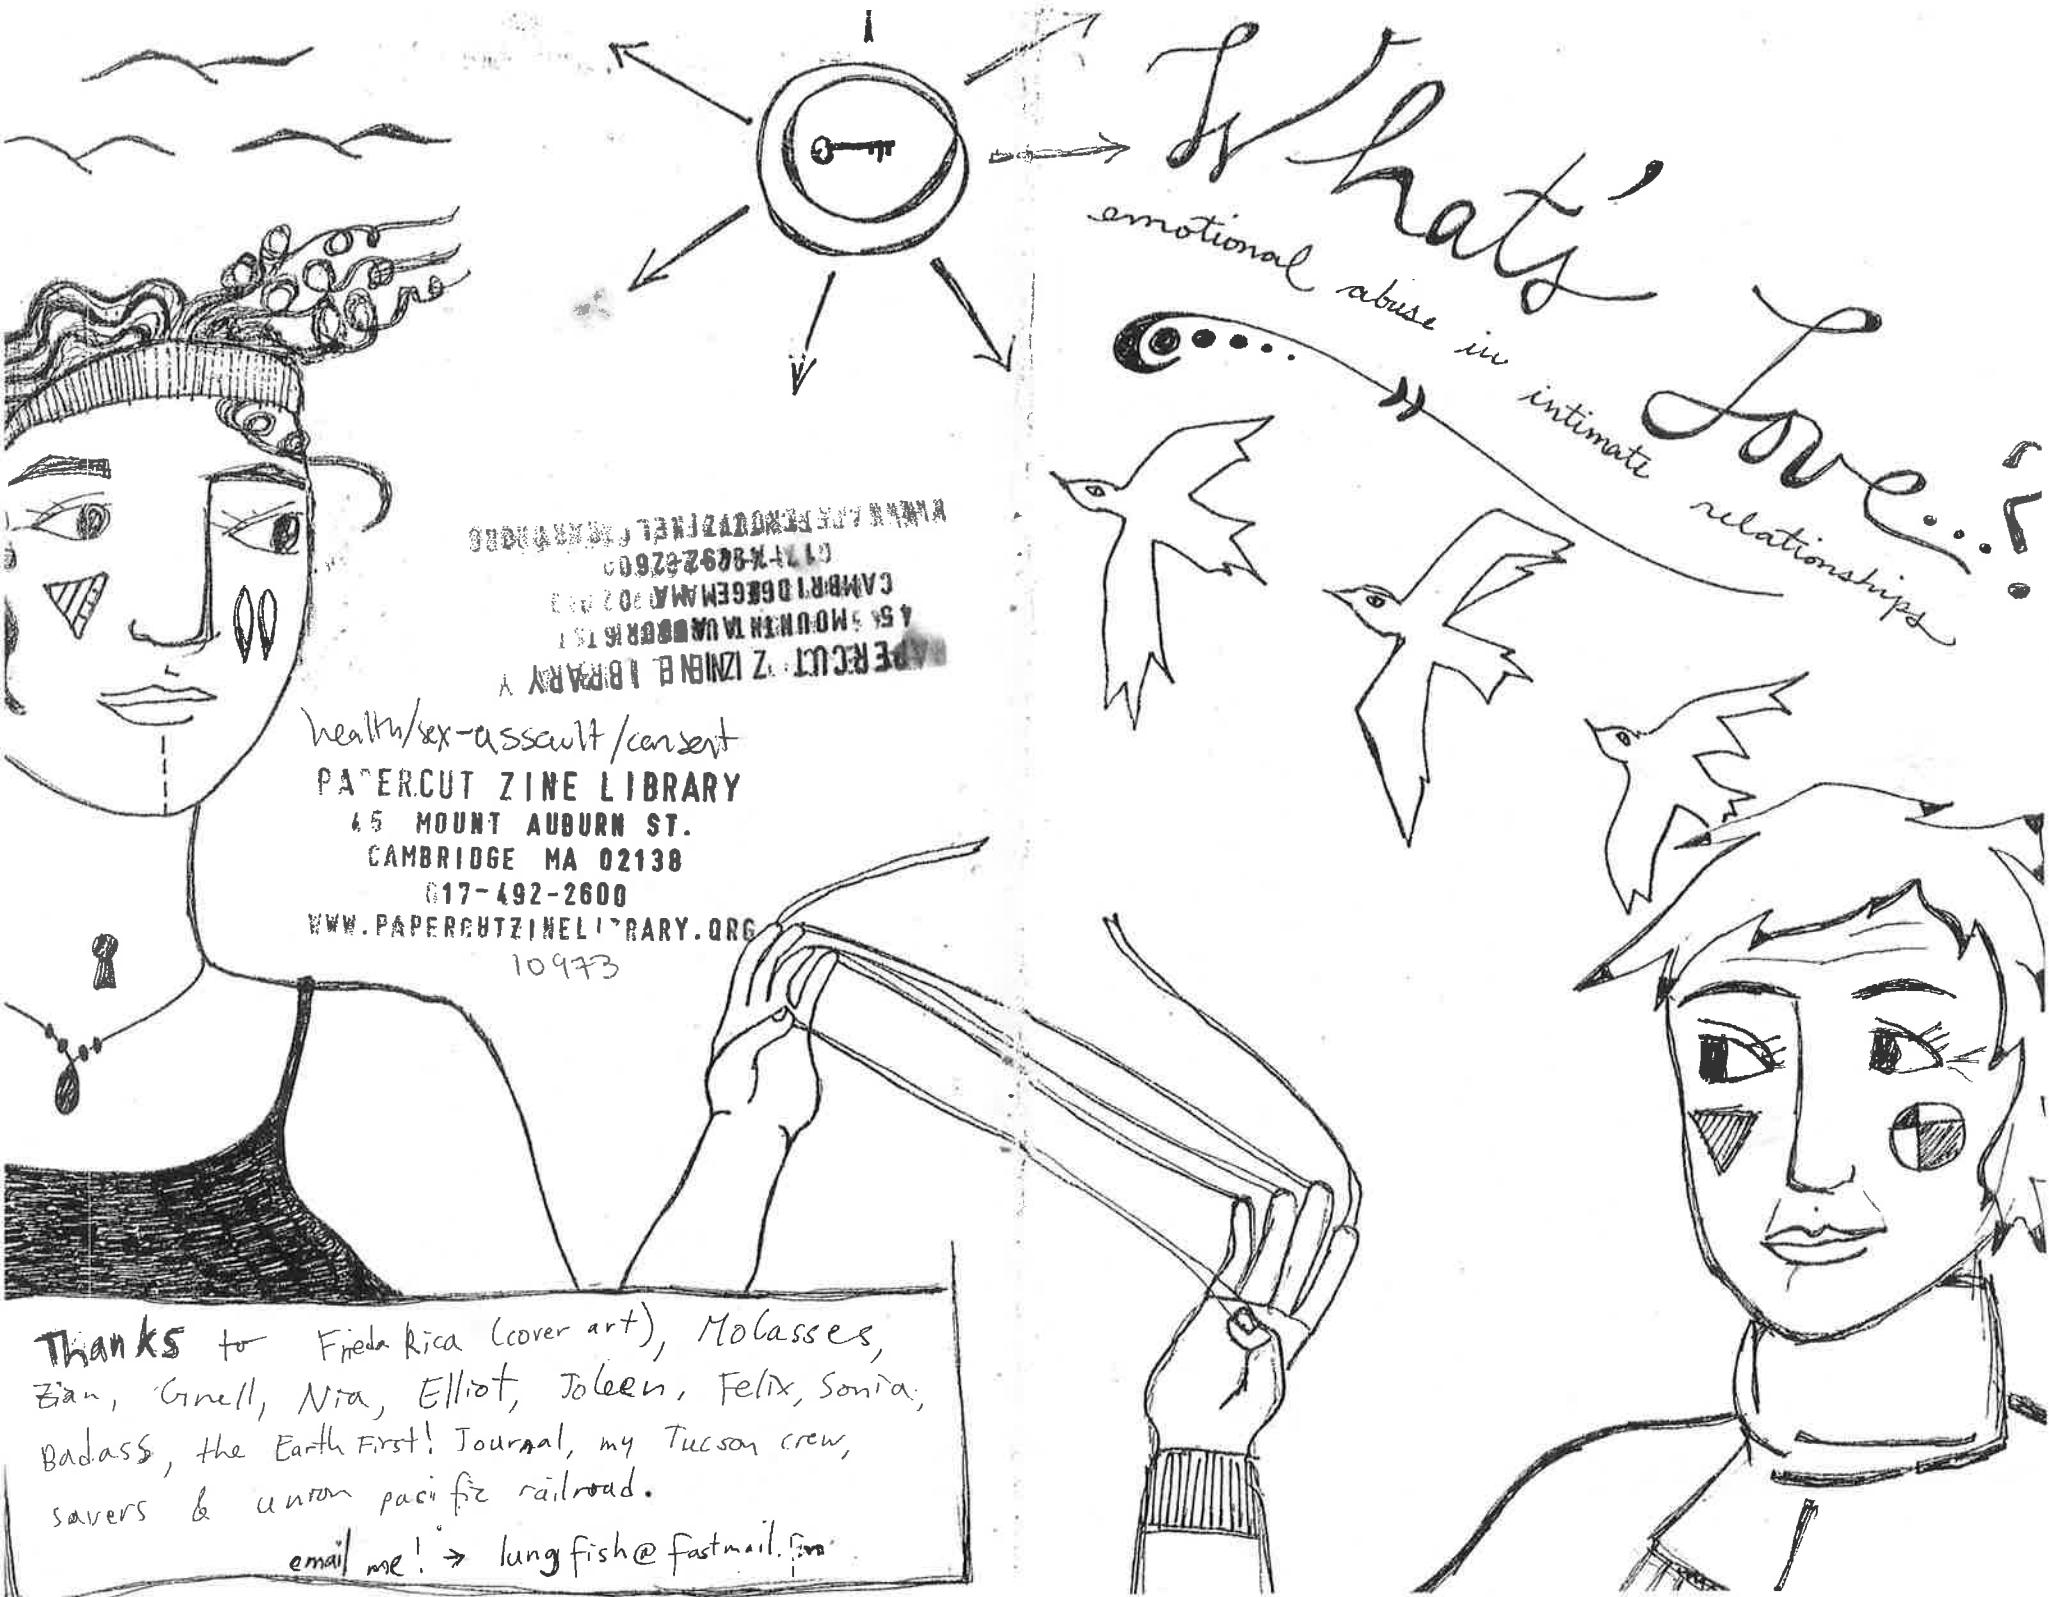 What's Love...?
emotional abuse in intimate relationships
PAPERCUT ZINE LIBRARY
MOUNT AUBURN ST.
health/sex-assault/consent
PAPERCUT ZINE LIBRARY
45 MOUNT AUBURN ST.
CAMBRIDGE MA 02138
617-492-2600
WWW.PAPERCUTZINELIBRARY.ORG
10973
Thanks to Frieda Rica (cover art), Molasses,
Zian, Nia, Elliot, Joleen, Felix, Sonia,
Badass, the Earth First! Journal, my Tucson crew,
savers & union pacific railroad.
email me! → lungfish@fastmail.fm